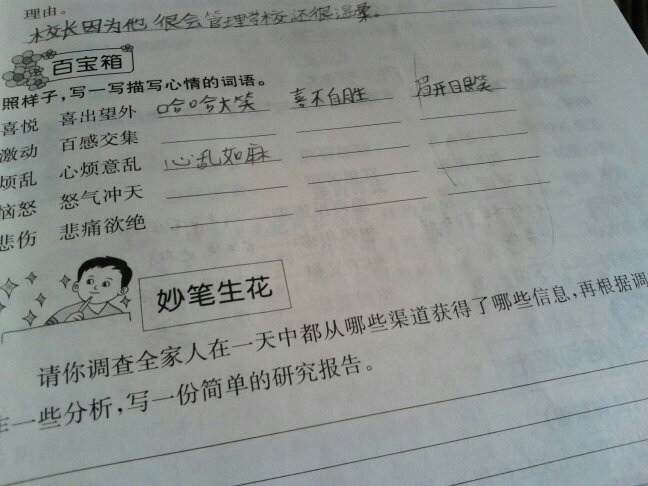 理由。
校长因为他很会管理学校还很温柔。
百宝箱
照样子,写一写描写心情的词语。
喜悦 喜出望外 哈哈大笑 喜不自胜 眉开眼笑
激动 百感交集
烦乱 心烦意乱 心乱如麻
恼怒 怒气冲天
悲伤 悲痛欲绝
妙笔生花
请你调查全家人在一天中都从哪些渠道获得了哪些信息,再根据调
作一些分析,写一份简单的研究报告。